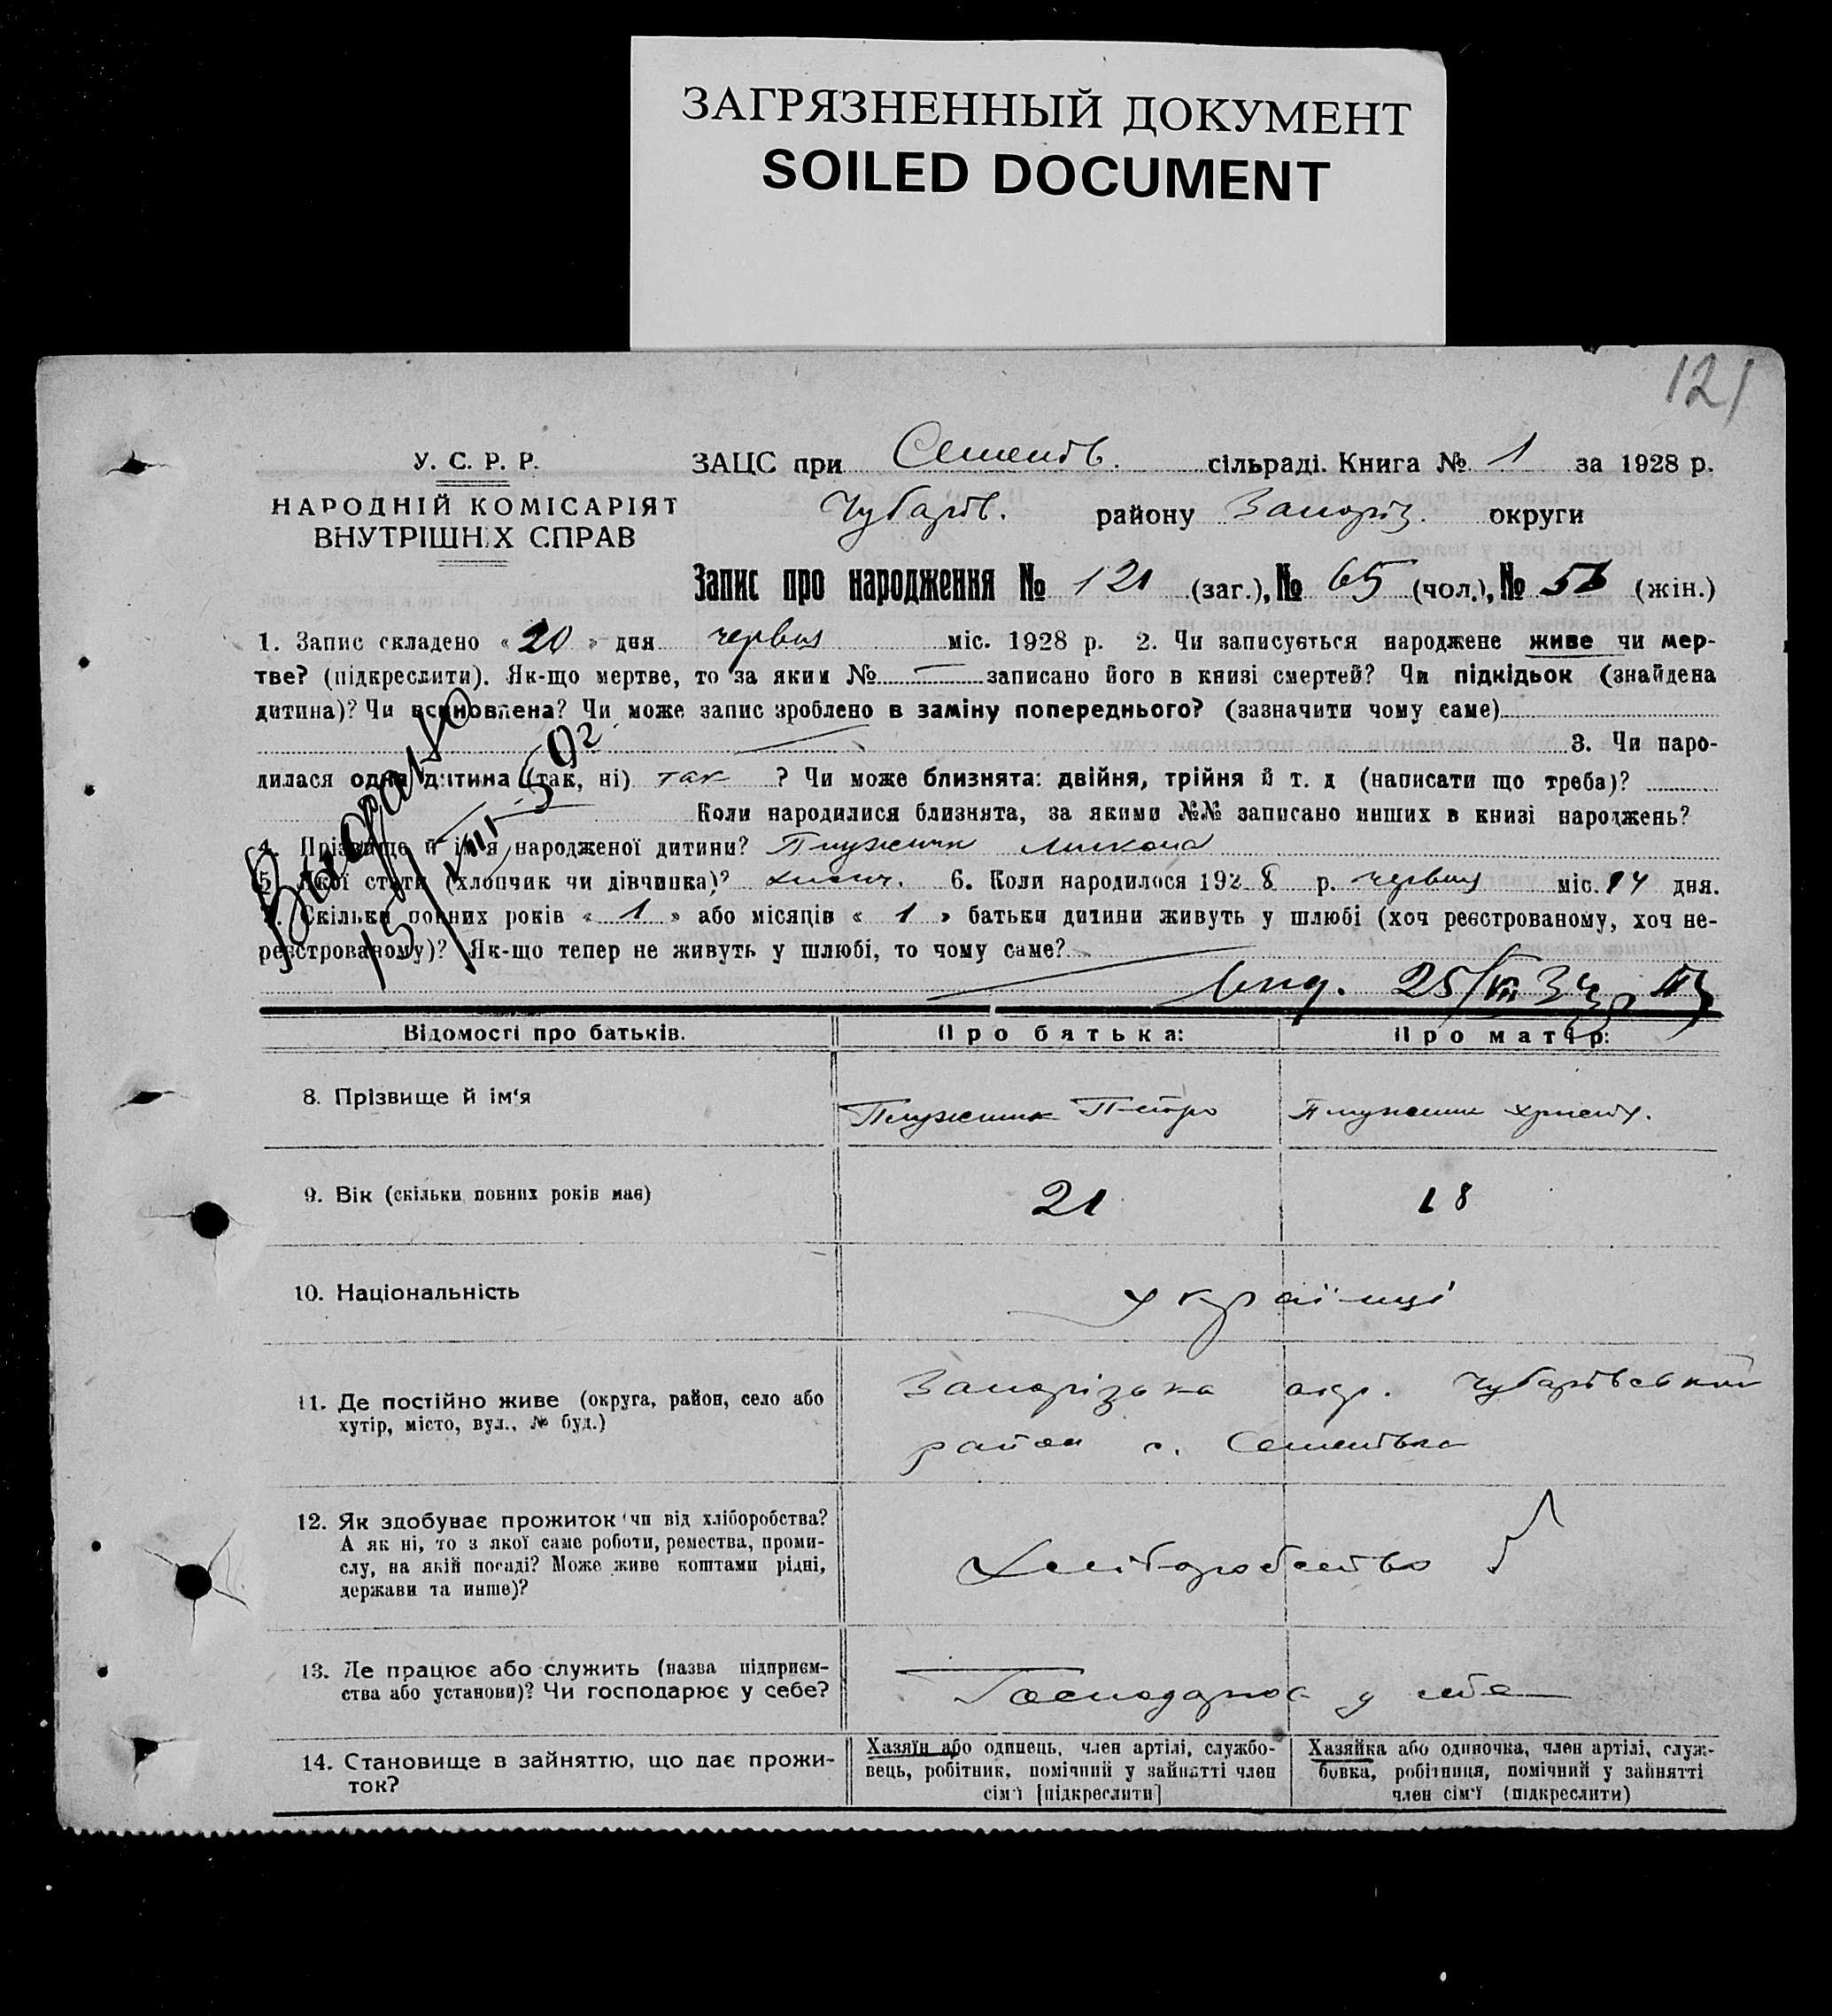 ЗАГРЯЗНЕННЫЙ ДОКУМЕНТ
SOILED DOCUMENT
121
У. С. Р. Р.
НАРОДНІЙ КОМІСАРІЯТ
ВНУТРІШНІХ СПРАВ
ЗАЦС при Семенів. сільраді. Книга № 1 за 1928 р.
Чубарів. району Запоріз. округи
Запис про народження № 121 (заг.), № 65 (чол.), № 56 (жін.)
1. Запис складено « 20 » дня червня міс. 1928 р. 2. Чи записується народжене живе чи мер-
тве? (підкреслити). Як-що мертве, то за яким № — записано його в книзі смертей? Чи підкідьок (знайдена
дитина)? Чи всиновлена? Чи може запис зроблено в заміну попереднього? (зазначити чому саме)
3. Чи наро-
дилася одна дитина (так, ні) так ? Чи може близнята: двійня, трійня й т. д (написати що треба)?
Коли народилися близнята, за якими №№ записано инших в книзі народжень?
4. Прізвище й ім'я народженої дитини? Плужник Микола
5. Якої стати (хлопчик чи дівчинка)? хлопч. 6. Коли народилося 1928 р. червня міс. 14 дня.
7. Скільки повних років « 1 » або місяців « 1 » батьки дитини живуть у шлюбі (хоч реєстрованому, хоч не-
реєстрованому)? Як-що тепер не живуть у шлюбі, то чому саме?
Відомості про батьків. Про батька: Про матір:
8. Прізвище й ім'я Плужник Петро Плужник Христя.
9. Вік (скільки повних років має) 21 18
10. Національність українці
11. Де постійно живе (округа, район, село або Запорізька окр. Чубарівський
хутір, місто, вул., № буд.) район с. Семенівка
12. Як здобуває прожиток чи від хліборобства?
А як ні, то з якої саме роботи, ремества, проми-
слу, на якій посаді? Може живе коштами рідні, Хліборобство
держави та инше)?
13. Де працює або служить (назва підприєм-
ства або установи)? Чи господарює у себе? Господарює у себе
14. Становище в зайняттю, що дає прожи-
ток?
Хазяїн або одинець, член артілі, службо-
вець, робітник, помічний у зайнятті член
сім'ї [підкреслити]
Хазяйка або одиночка, член артілі, служ-
бовка, робітниця, помічний у зайнятті
член сім'ї (підкреслити)